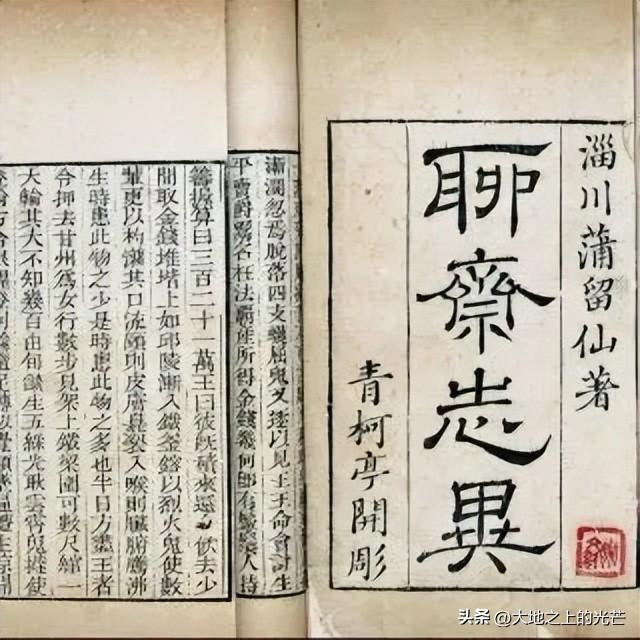 淄川蒲留仙著
聊齋志異
青柯亭開彫
漸濶忽焉脫落四支蠖屈鬼又逐以見王王命會計生
平賣爵鬻名枉法霸產所得金錢幾何即有鬡鬚人持
籌握算曰三百二十一萬王曰彼既積來還令飲去少
間取金錢堆堦上如邱陵漸入鐵釜鎔以烈火鬼使數
輩更以杓灌其口流頤則皮膚臭裂入喉則臟腑騰沸
生時患此物之少是時患此物之多也半日方盡王者
令押去甘州爲女行數步見架上鐵梁圍可數尺綰一
火輪其大不知幾百由旬燄生五綵光耿雲霄鬼撻使
头条 @大地之上的光芒